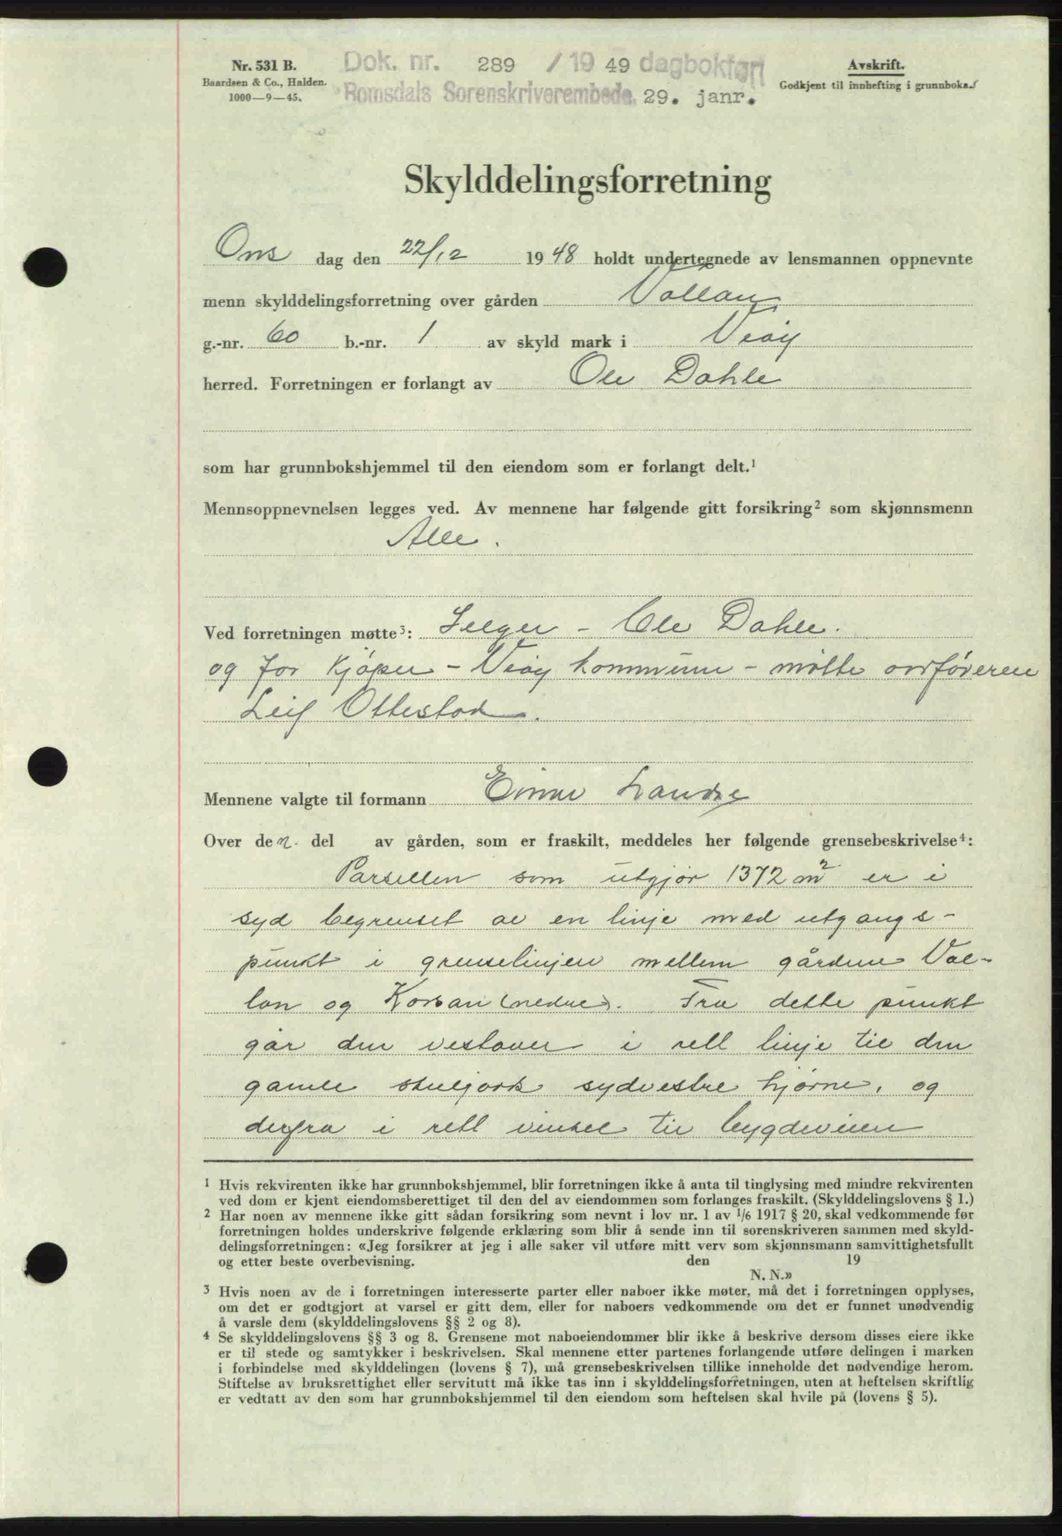 Nr. 531 B.
Baardsen & Co., Halden.
1000—9—45.
Dok. nr. 289 / 19 49 dagbokført
Romsdals Sorenskriverembede, 29. janr.
Avskrift.
Godkjent til innhefting i grunnboka.
Skylddelingsforretning
Ons dag den 22/12 1948 holdt undertegnede av lensmannen oppnevnte
menn skylddelingsforretning over gården Vollan
g.-nr. 60 b.-nr. 1 av skyld mark i Veøy
herred. Forretningen er forlangt av Ole Dahle
som har grunnbokshjemmel til den eiendom som er forlangt delt.¹
Mennsoppnevnelsen legges ved. Av mennene har følgende gitt forsikring² som skjønnsmenn
Alle.
Ved forretningen møtte³: Selger - Ole Dahle.
og for kjøper - Veøy kommune - møtte ordføreren
Leif Ottestad.
Mennene valgte til formann Einar
Over den del av gården, som er fraskilt, meddeles her følgende grensebeskrivelse⁴:
Parsellen som utgjør 1372 m² er i
syd begrenset av en linje med utgangs-
punkt i grenselinjen mellem gårdene Vol-
lan og (nedre). Fra dette punkt
går den vestover i rett linje til den
gamle sydvestre hjørne, og
derfra i rett vinkel til bygdeveien
1 Hvis rekvirenten ikke har grunnbokshjemmel, blir forretningen ikke å anta til tinglysing med mindre rekvirenten
ved dom er kjent eiendomsberettiget til den del av eiendommen som forlanges fraskilt. (Skylddelingslovens § 1.)
2 Har noen av mennene ikke gitt sådan forsikring som nevnt i lov nr. 1 av 1/6 1917 § 20, skal vedkommende før
forretningen holdes underskrive følgende erklæring som blir å sende inn til sorenskriveren sammen med skyld-
delingsforretningen: «Jeg forsikrer at jeg i alle saker vil utføre mitt verv som skjønnsmann samvittighetsfullt
og etter beste overbevisning. den 19
N. N.»
3 Hvis noen av de i forretningen interesserte parter eller naboer ikke møter, må det i forretningen opplyses,
om det er godtgjort at varsel er gitt dem, eller for naboers vedkommende om det er funnet unødvendig
å varsle dem (skylddelingslovens §§ 2 og 8).
4 Se skylddelingslovens §§ 3 og 8. Grensene mot naboeiendommer blir ikke å beskrive dersom disses eiere ikke
er til stede og samtykker i beskrivelsen. Skal mennene etter partenes forlangende utføre delingen i marken
i forbindelse med skylddelingen (lovens § 7), må grensebeskrivelsen tillike inneholde det nødvendige herom.
Stiftelse av bruksrettighet eller servitutt må ikke tas inn i skylddelingsforretningen, uten at heftelsen skriftlig
er vedtatt av den som har grunnbokshjemmel til den eiendom som heftelsen skal hvile på (lovens § 5).